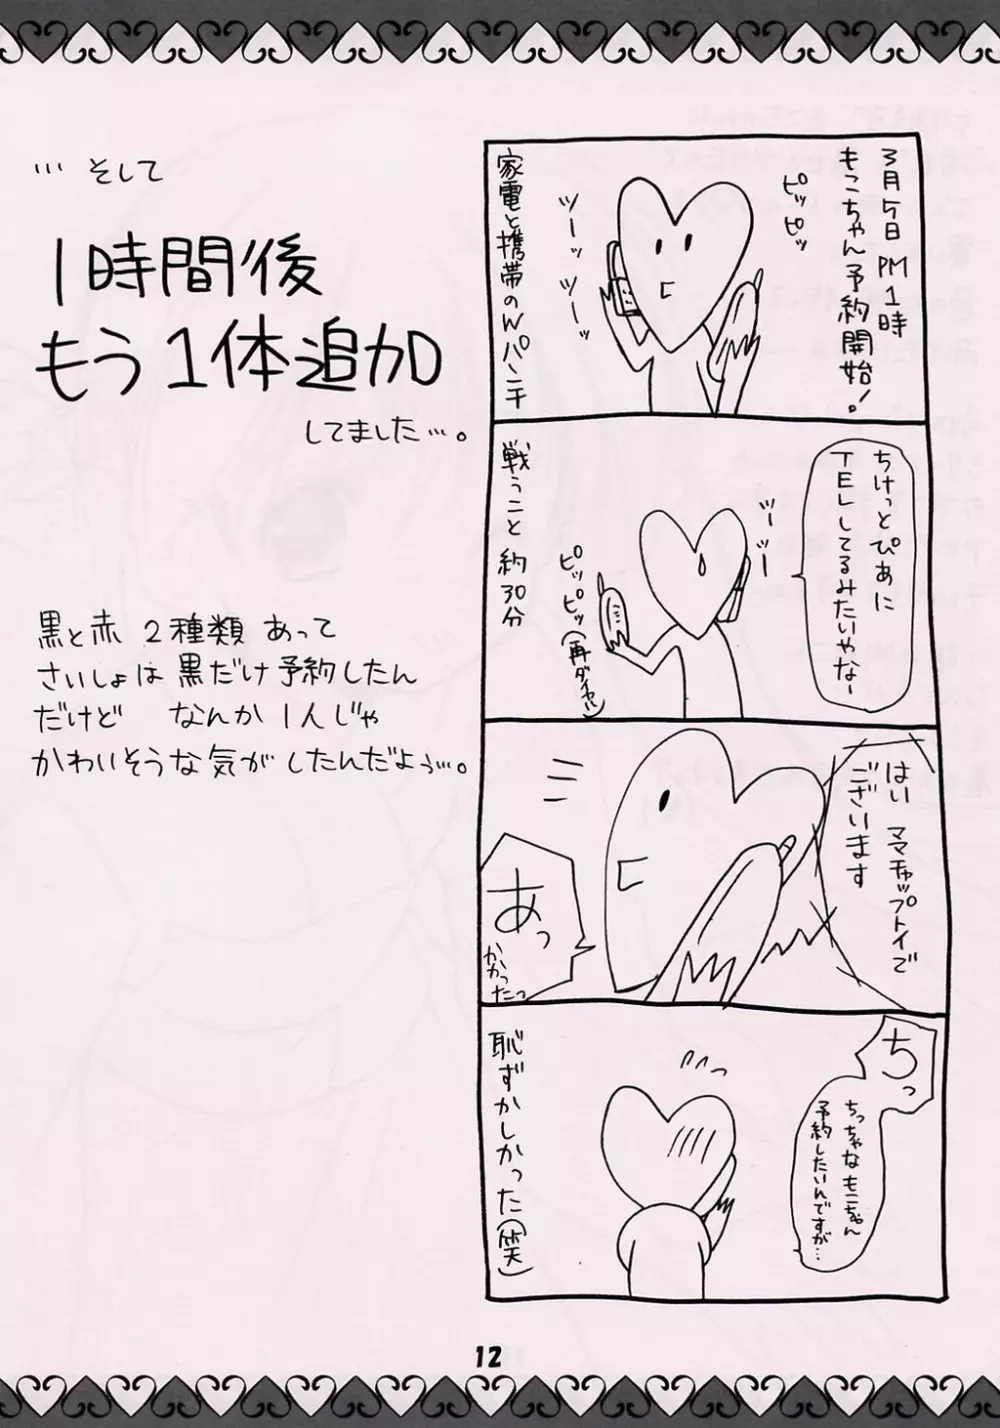 3月5日 PM1時
もこちゃん予約開始!
ピッピッ
ツーッツーッ
家電と携帯のWパンチ
ちけっとぴあに
TELしてるみたいやなー
ツーツー
ピッピッ(再ダイヤル)
戦うこと 約30分
はい ママチャップトイで
ございます
あっ
かかったっ
ちっ
ちっちゃなもこちゃん
予約したいんですが…
恥ずかしかった(笑)
… そして
1時間後
もう1体追加
してました…。
黒と赤 2種類 あって
さいしょは 黒だけ 予約したん
だけど なんか 1人じゃ
かわいそうな気が したんだよぅ…。
12